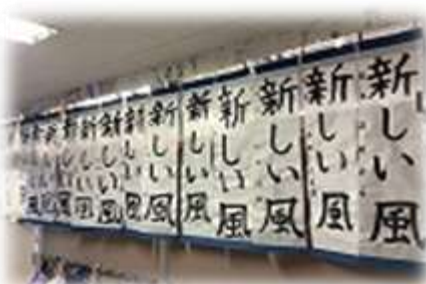 新しい風
新しい風
新しい風
新しい風
新しい風
新しい風
新しい風
新しい風
新しい風
新しい風
新しい風